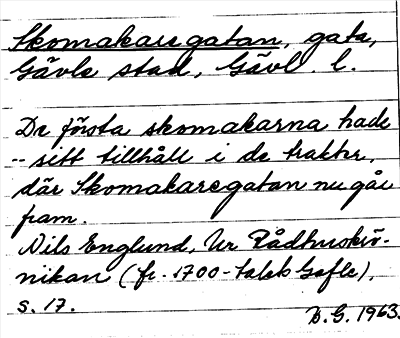 Skomakaregatan, gata,
Gävle stad, Gävl. l.
De första skomakarna hade
-- sitt tillhåll i de trakter,
där Skomakaregatan nu går
fram.
Nils Englund, Ur Rådhuskrö-
nikan (fr. 1700-talets Gefle),
s. 17.
B.G. 1963.